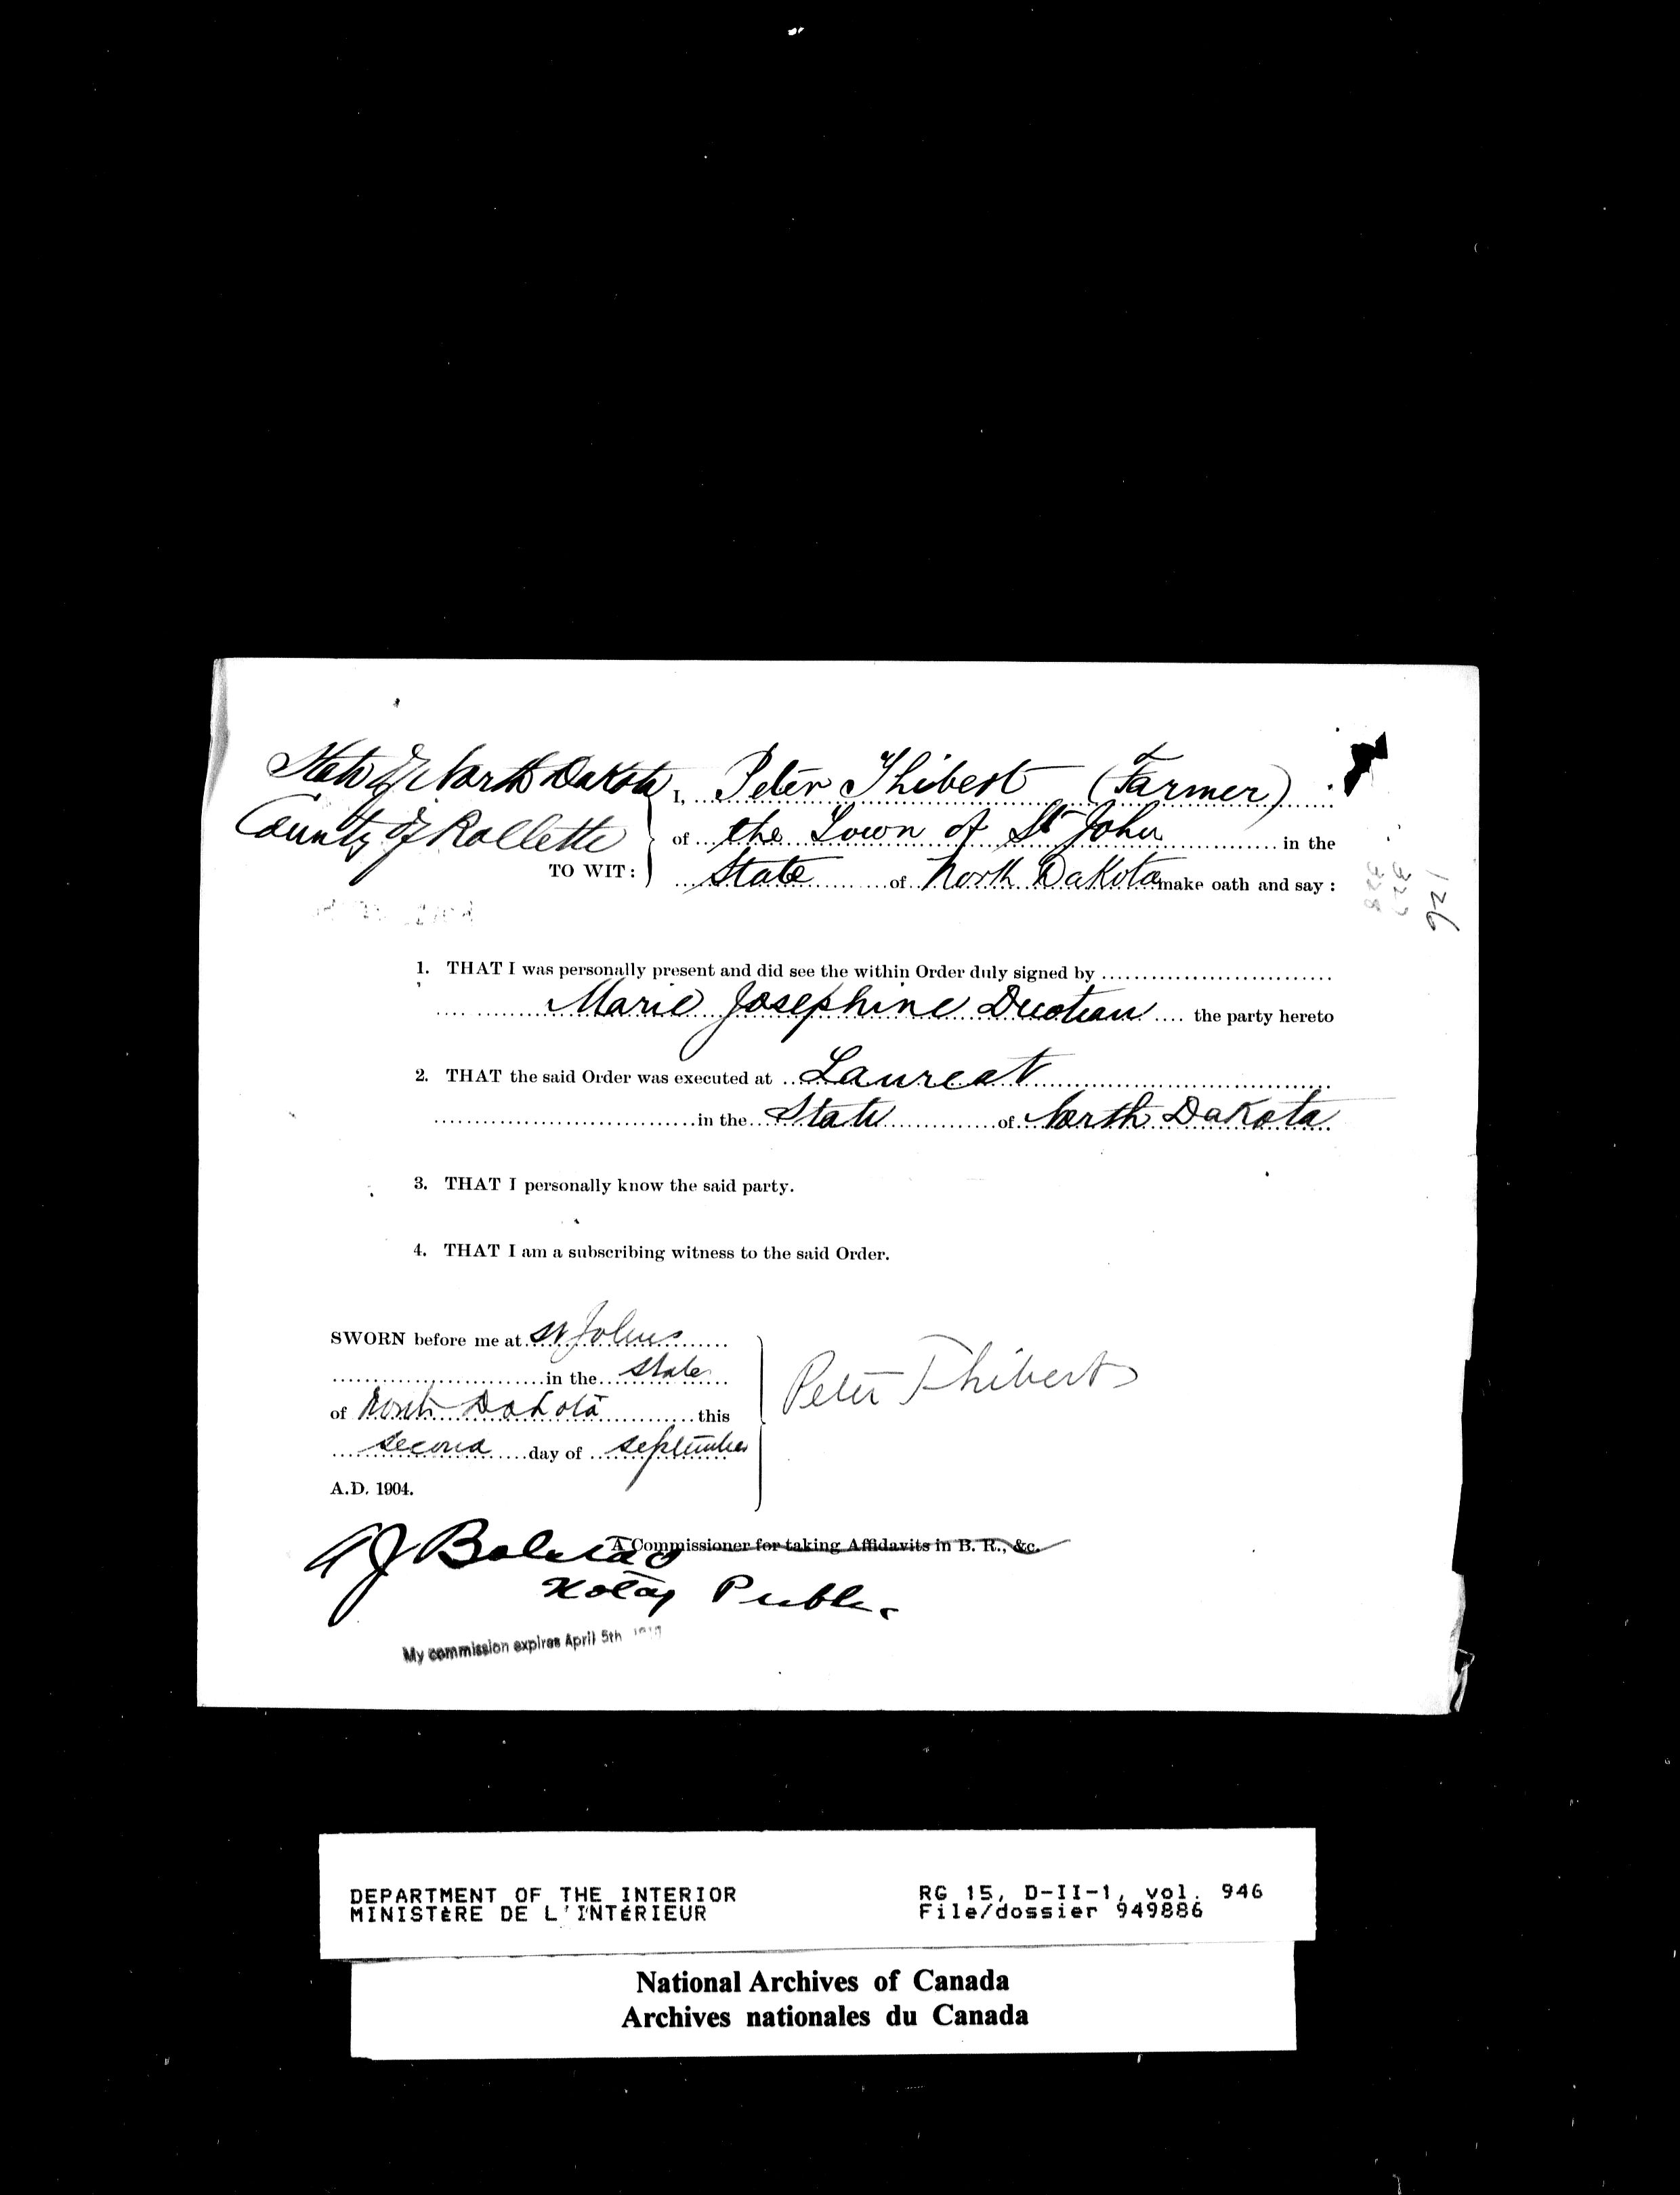 State of North Dakota
County of Rollette
TO WIT:
I, Peter Thibert (Farmer)
of the Town of St John in the
State of North Dakota make oath and say :
126
327
328
1. THAT I was personally present and did see the within Order duly signed by
Marie Josephine the party hereto
2. THAT the said Order was executed at Laureat
in the State of North Dakota
3. THAT I personally know the said party.
4. THAT I am a subscribing witness to the said Order.
SWORN before me at St Johns
in the State
of North Dakota this
second day of September
A.D. 1904.
Peter Thibert
A Commissioner for taking Affidavits in B. R., &c.
A J
Notary Public
My commission expires April 5th
DEPARTMENT OF THE INTERIOR
MINISTÈRE DE L'INTÉRIEUR
RG 15, D-II-1, vol. 946
File/dossier 949886
National Archives of Canada
Archives nationales du Canada